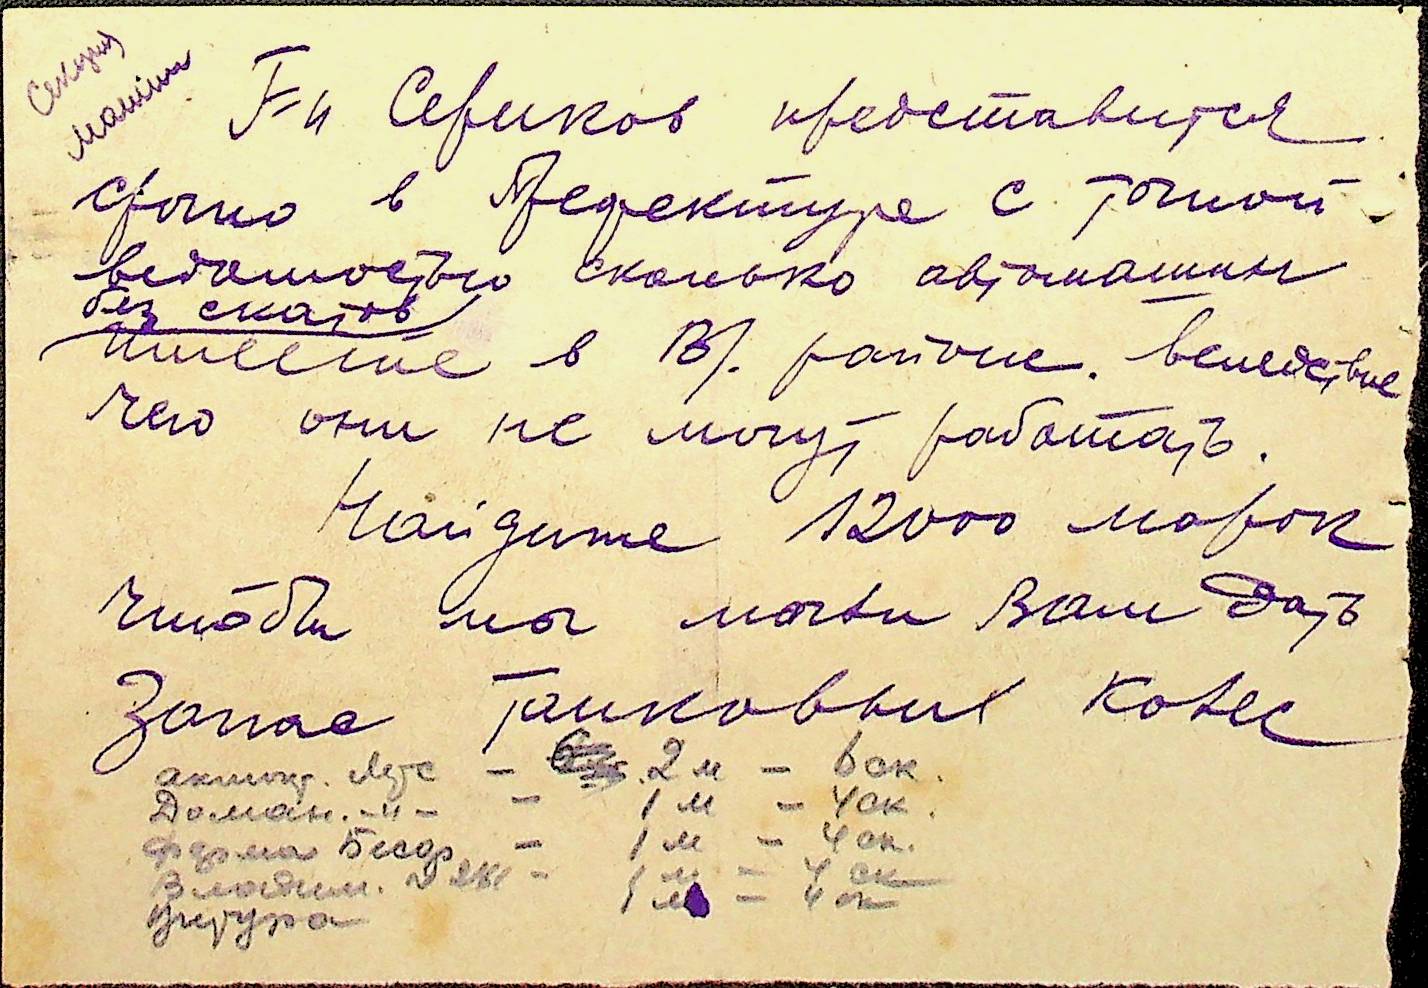 Секция
машин
Г-н Сериков представится
срочно в Префектуре с точной
ведомостью сколько автомашин
без скатов
имеете в В/. районе. вследствие
чего они не могут работать.
Найдите 12000 марок
чтобы мы могли Вам дать
Запас танковых колес
2 м - 6 ск.
Доман. -"- - 1 м - 4 ск.
ферма - 1 м - 4 ск.
Владим. - 1 м - 4 ск
1 м - 4 ск